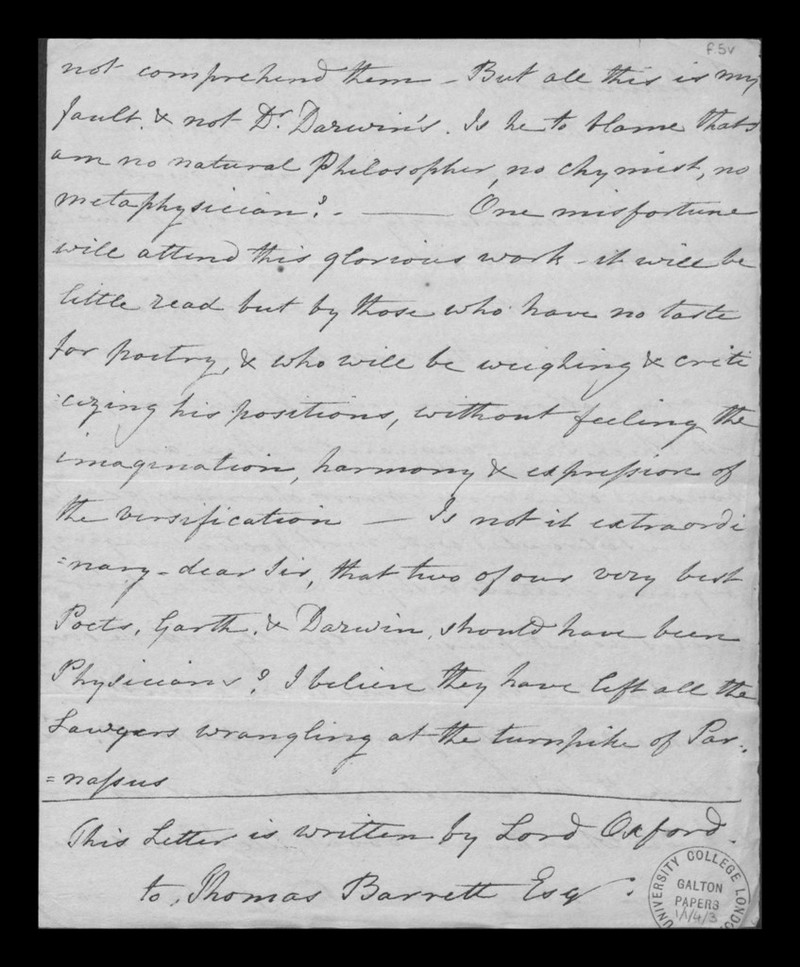 f.5v
not comprehend them - But all this is my
fault. & not Dr. Darwin's. Is he to blame that I
am no natural Philosopher, no chymist, no
metaphysician? - —— One misfortune
will attend this glorious work - it will be
little read but by those who have no taste
for poetry, & who will be weighing & criti
=cizing his positions, without feeling the
imagination, harmony & expression of
the versification — Is not it extraordi
=nary - dear Sir, that two of our very best
Poets, Garth, & Darwin, should have been
Physicians? I believe they have left all the
Lawyers wrangling at the turnpike of Par-
=nassus
This Letter is written by Lord Oxford.
to, Thomas Barrett Esqr.
UNIVERSITY COLLEGE LONDON
GALTON
PAPERS
1/1/4/3